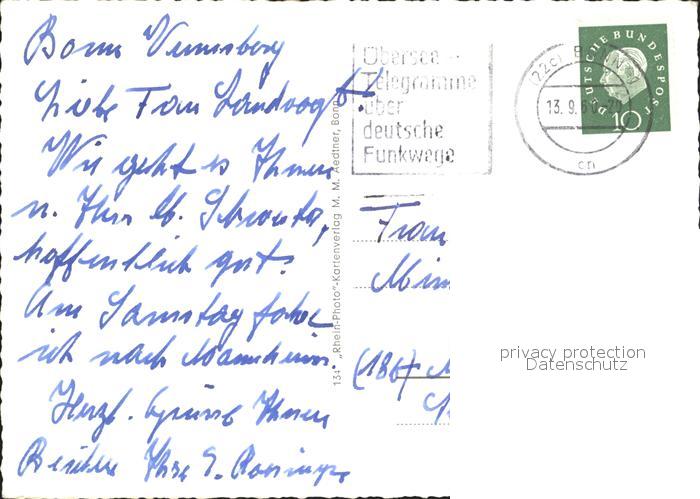 Bonn Venusberg
Liebe Frau Landvogt!
Wie geht es Ihnen
u. Ihrer lb. Schwester,
hoffentlich gut?
Am Samstag fahre
ich nach Mannheim.
Herzl. Grüsse Ihnen
Beiden Ihre E.
134 "Rhein-Photo"-Kartenverlag M. M. Aedtner, Bonn
Übersee-
Telegramme
über
deutsche
Funkwege
(22c) BONN
13. 9. 6
cn
DEUTSCHE BUNDESPOST
10
Frau
(186
privacy protection
Datenschutz